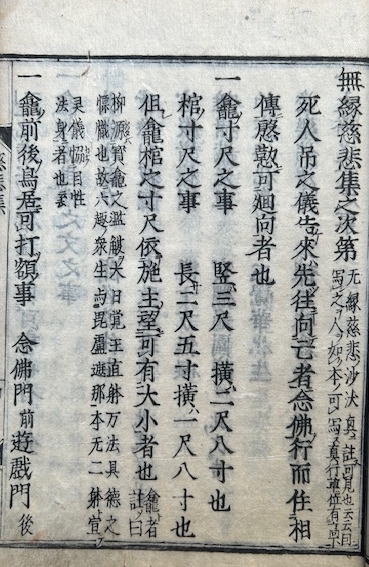 無縁慈悲集之次第
无縁慈悲沙汰真註可見也云云同
写之人如本可写真行
死人吊之儀告來先往向亡者念佛行而住相
傳慇懃可廻向者也
一 龕寸尺之事 竪三尺 横二尺八寸也
棺寸尺之事 長二尺五寸横一尺八寸也
但龕棺之寸尺依施主望可有大小者也
龕者註曰
柳源寳龕之濫觴大日覚王直躰万法具徳之
幖幟也故六趣衆生与毘盧遮那本无二躰宜
灵儀恊自性
法身者也云云
一 龕前後鳥居可打額事 念佛門前遊戯門後
慈悲集